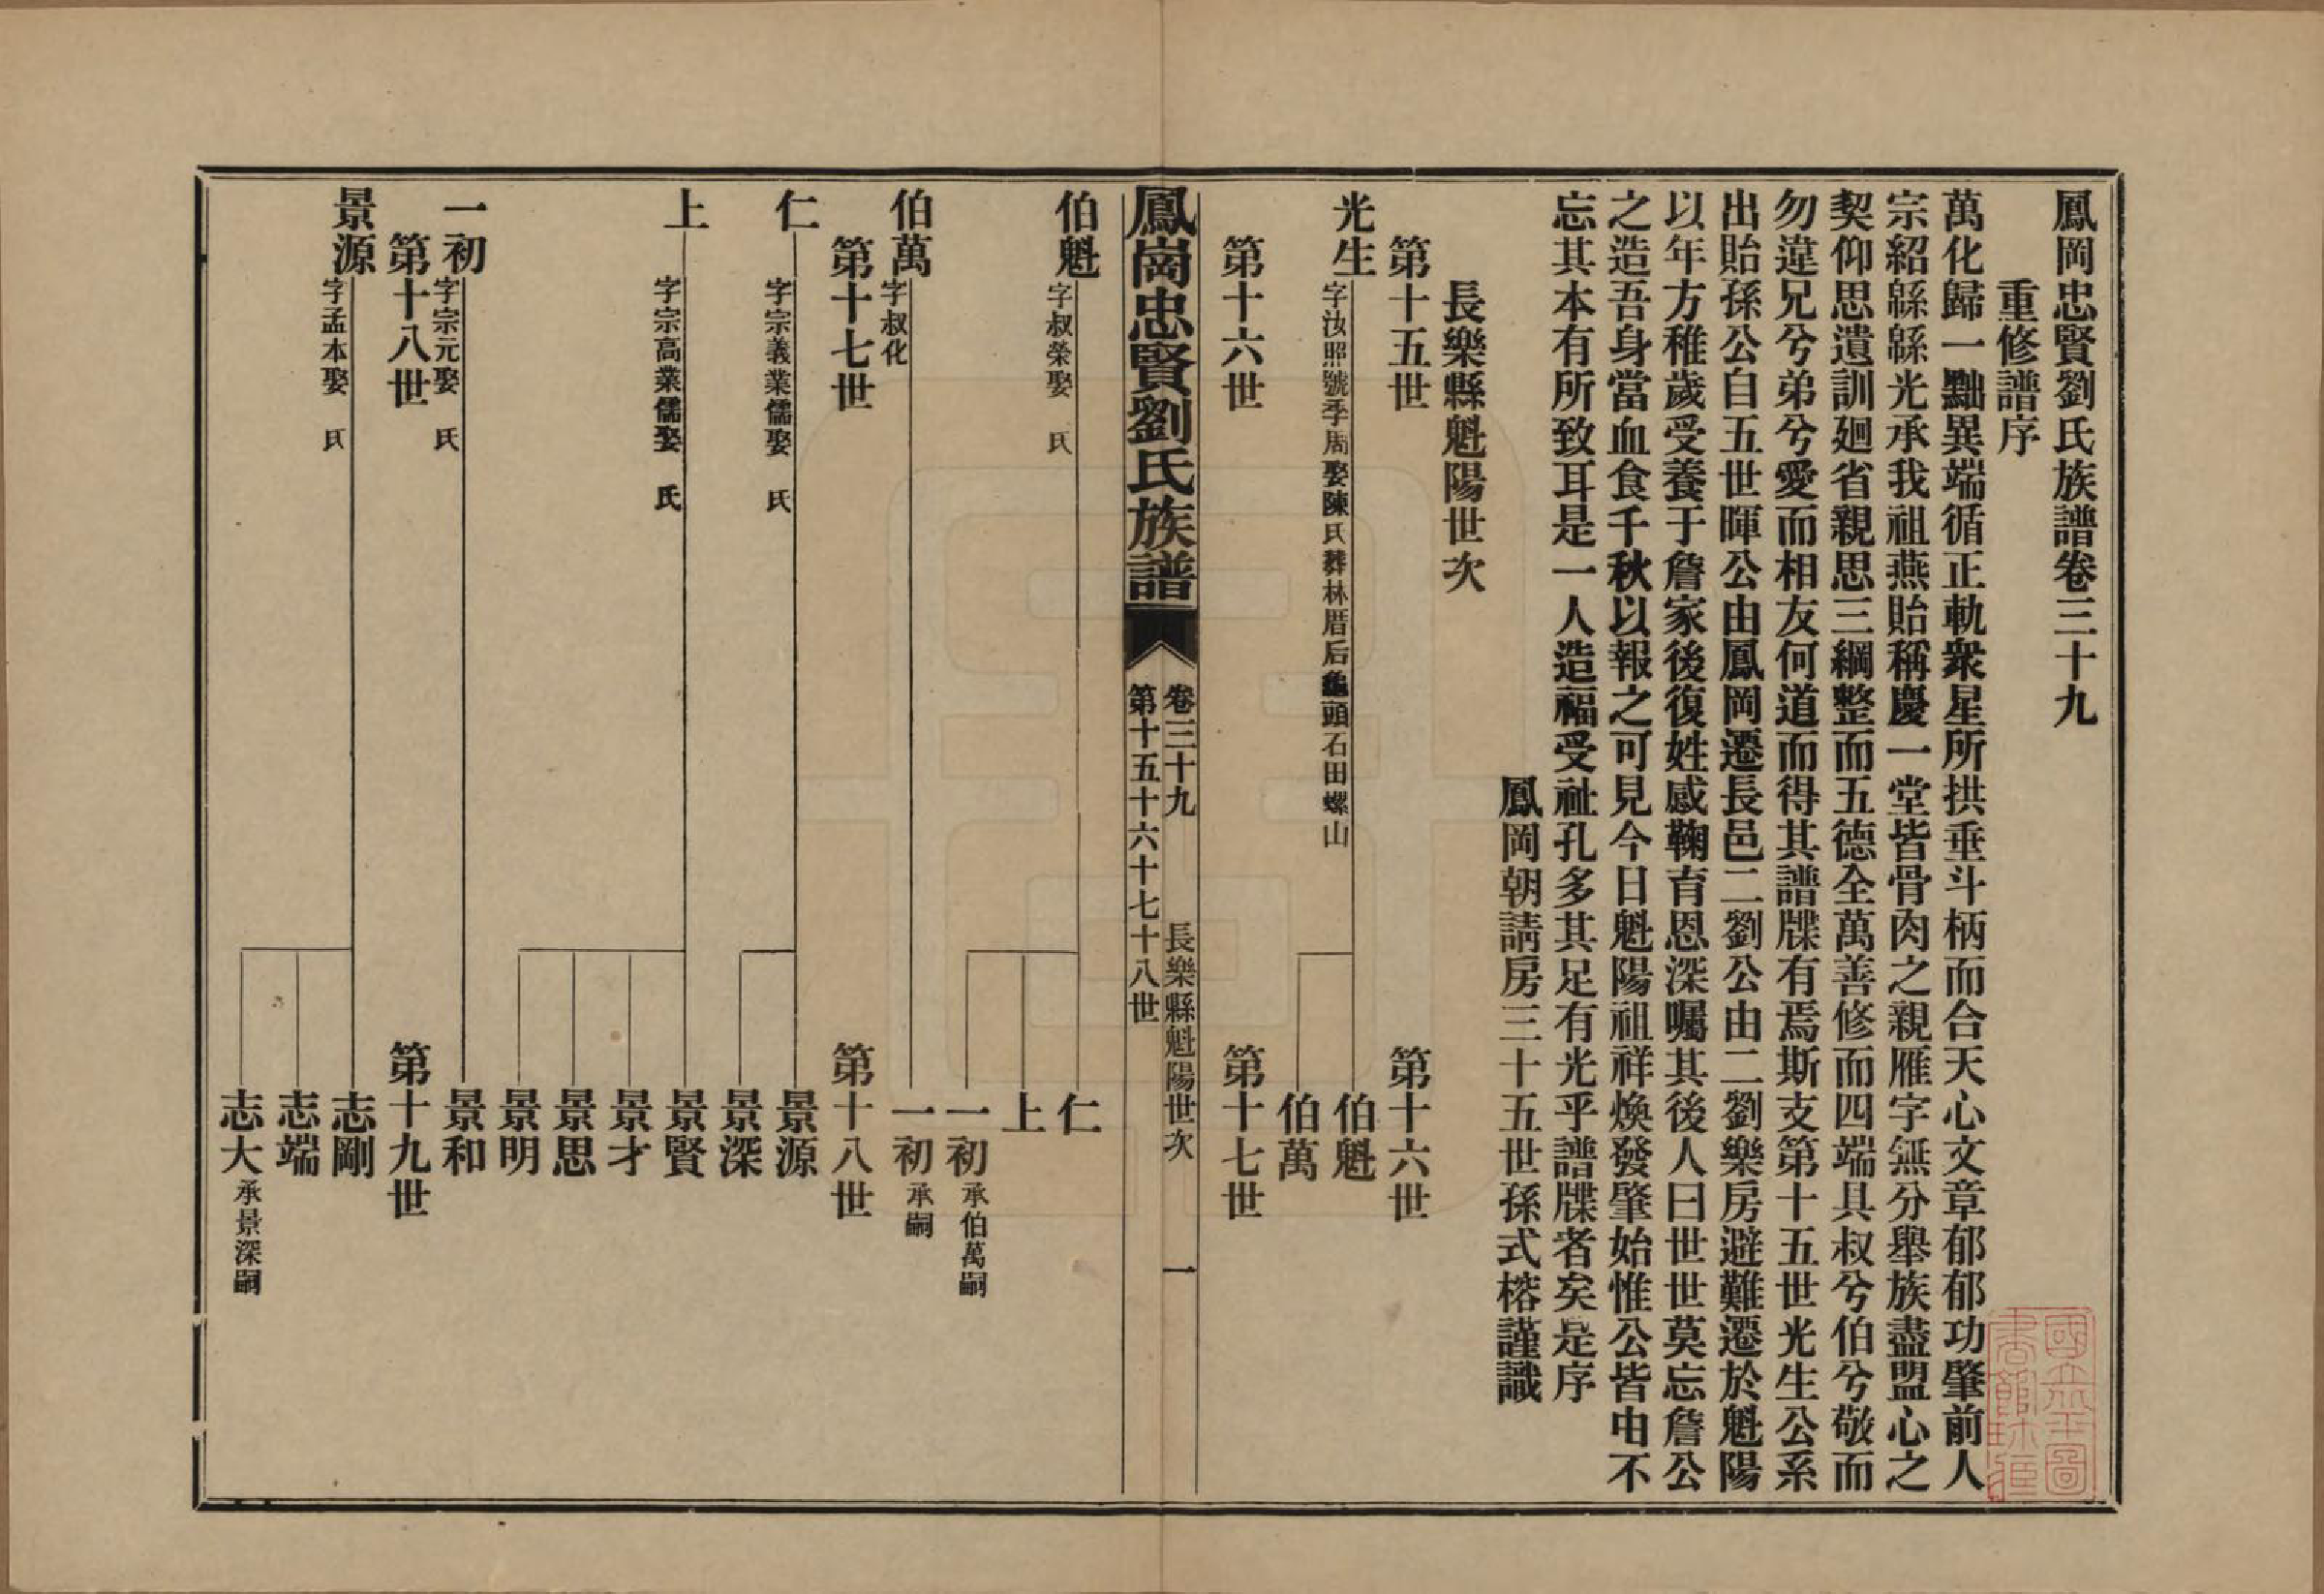 鳳岡忠賢劉氏族譜卷三十九
重修譜序
萬化歸一黜異端循正軌衆星所拱垂斗柄而合天心文章郁郁功肇前人
宗紹緜緜光承我祖燕貽稱慶一堂皆骨肉之親雁字無分舉族盡盟心之
契仰思遺訓廻省親思三綱整而五德全萬善修而四端具叔兮伯兮敬而
勿違兄兮弟兮愛而相友何道而得其譜牒有焉斯支第十五世光生公系
出貽孫公自五世暉公由鳳岡遷長邑二劉公由二劉樂房避難遷於魁陽
以年方稚歲受養于詹家後復姓感鞠育恩深囑其後人曰世世莫忘詹公
之造吾身當血食千秋以報之可見今日魁陽祖祥煥發肇始惟公皆由不
忘其本有所致耳是一人造福受祉孔多其足有光乎譜牒者矣是序
鳳岡朝請房三十五世孫式榕謹識
長樂縣魁陽世次
第十五世 第十六世
光生 字汝照號季周娶陳氏葬林厝后龜頭石田螺山 伯魁
伯萬
第十六世 第十七世
鳳崗忠賢劉氏族譜
卷三十九 長樂縣魁陽世次 一
第十五十六十七十八世
伯魁 字叔榮娶 氏 仁
上
一初 承伯萬嗣
伯萬 字叔化 一初 承嗣
第十七世 第十八世
仁 字宗義業儒娶 氏 景源
景深
上 字宗高業儒娶 氏 景賢
景才
景思
景明
一初 字宗元娶 氏 景和
第十八世 第十九世
景源 字孟本娶 氏 志剛
志端
志大 承景深嗣